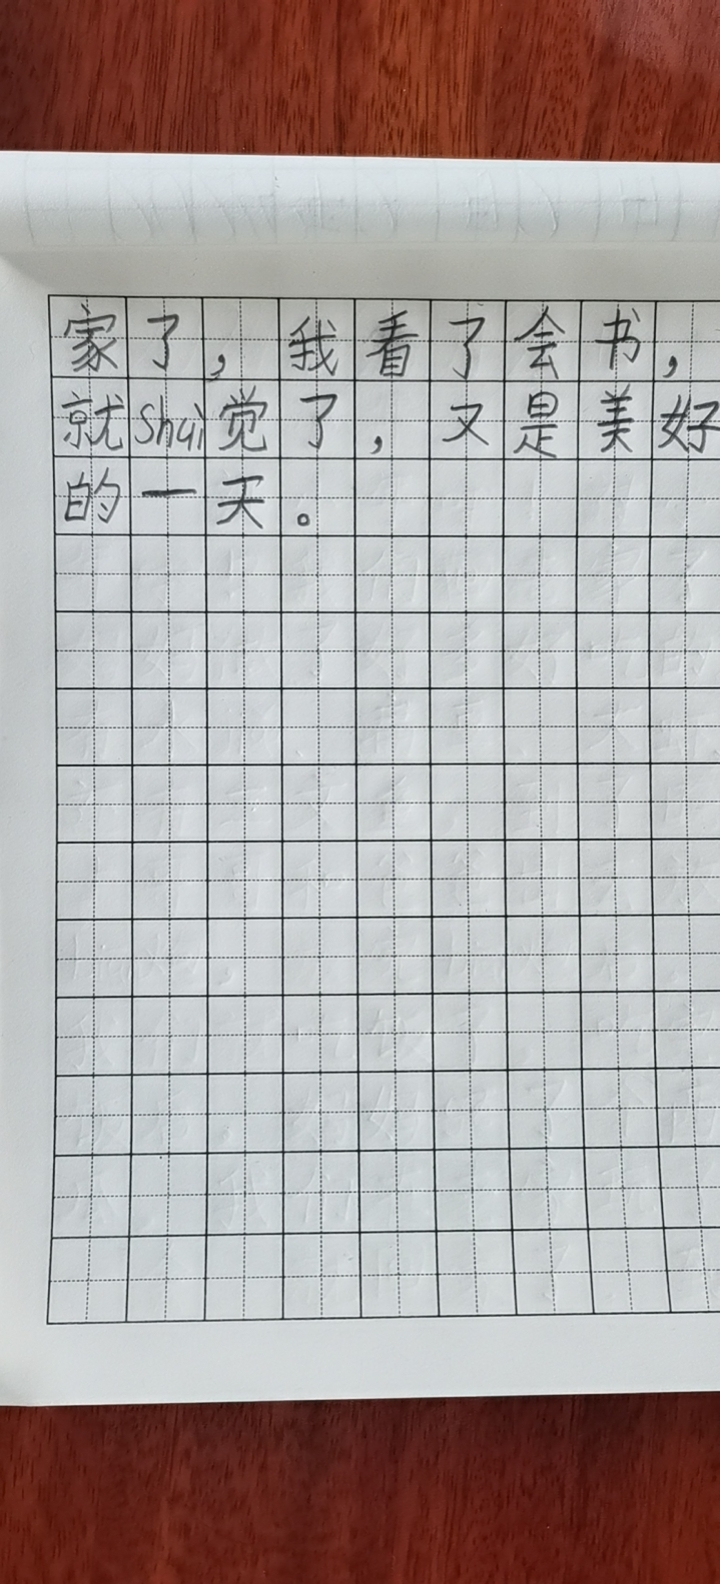 家了，我看了会书，
就Shui觉了，又是美好
的一天。